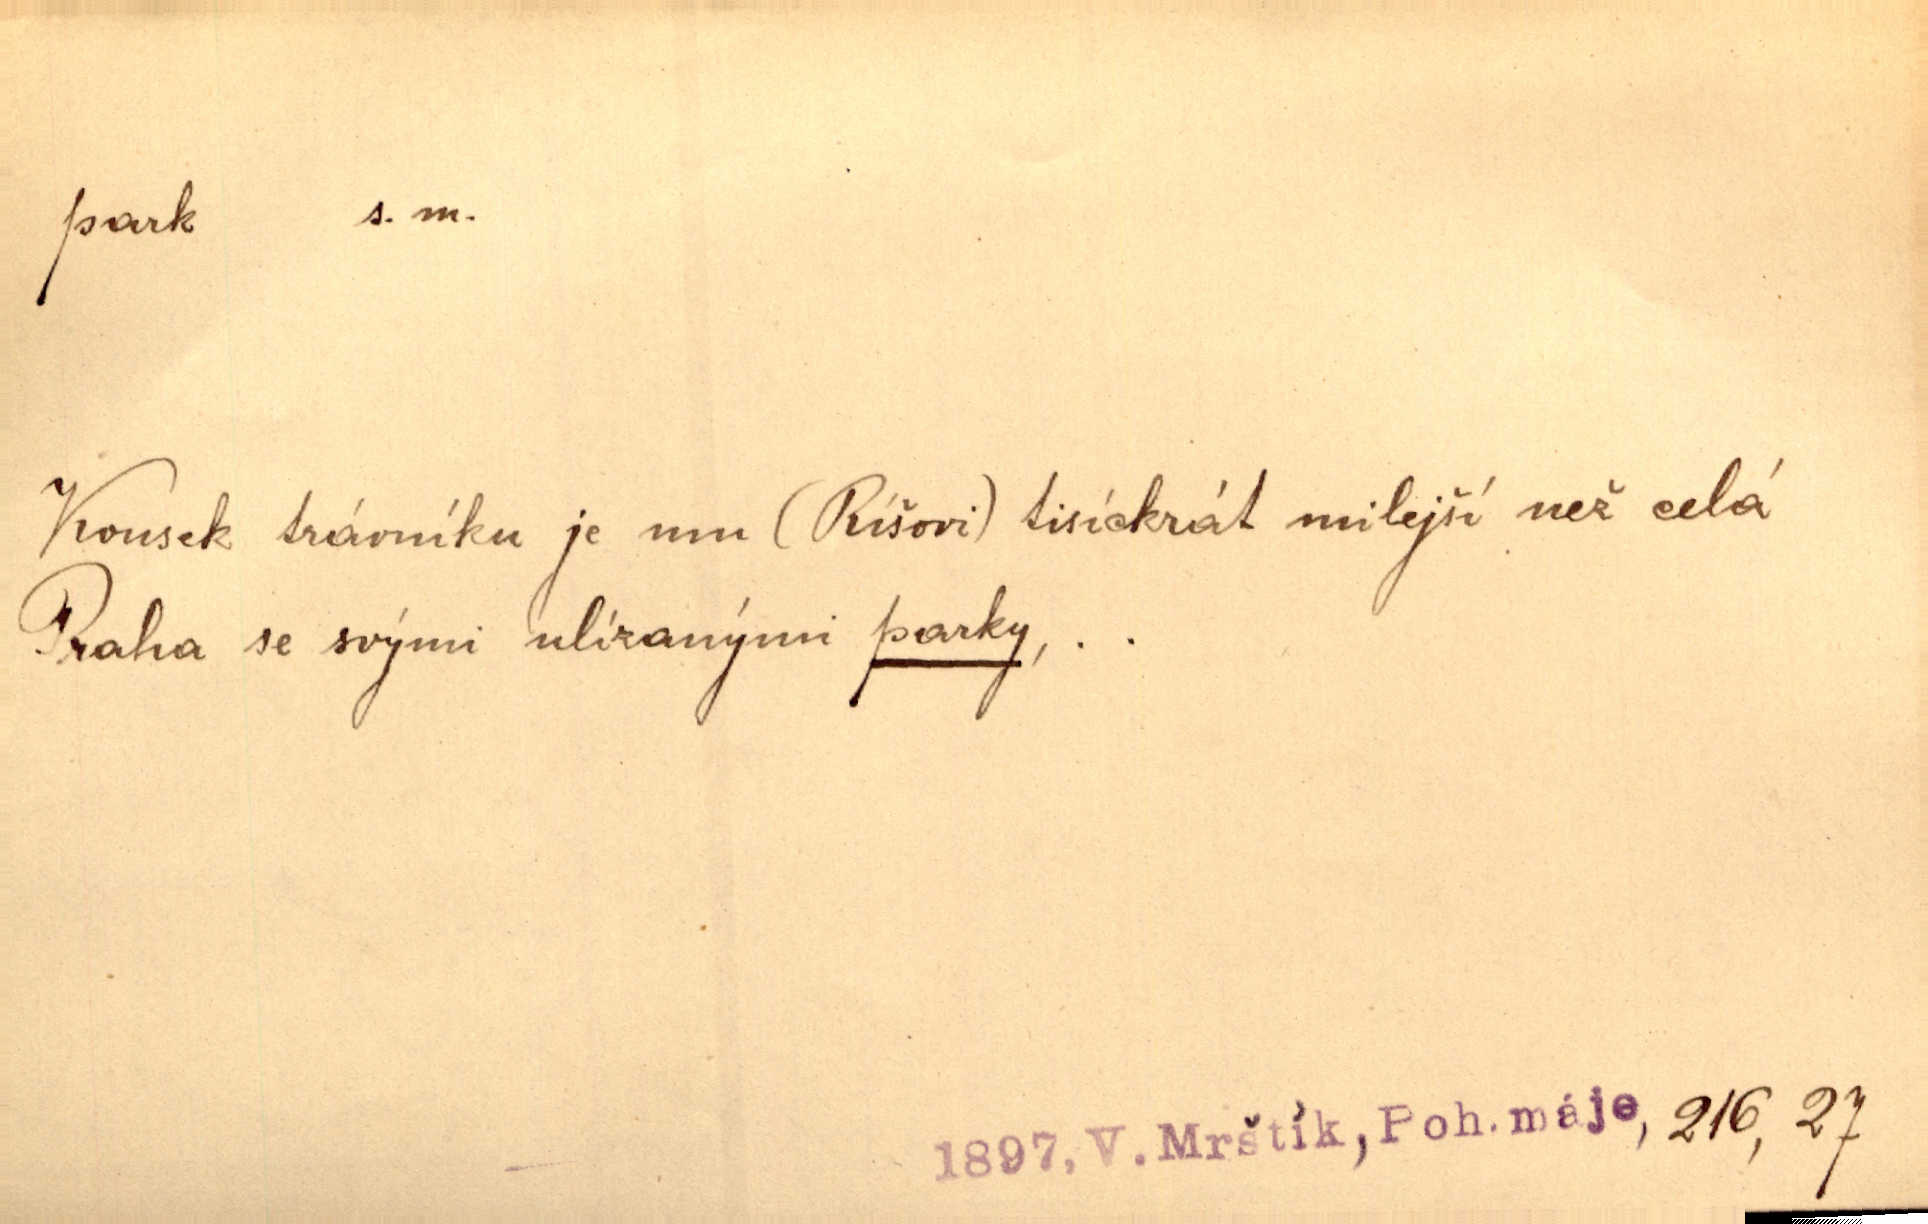 park s. m.
Kousek trávníku je mu (Ríšovi) tisíckrát milejší než celá
Praha se svými ulízanými parky, . .
1897, V. Mrštík, Poh. máje, 216, 27